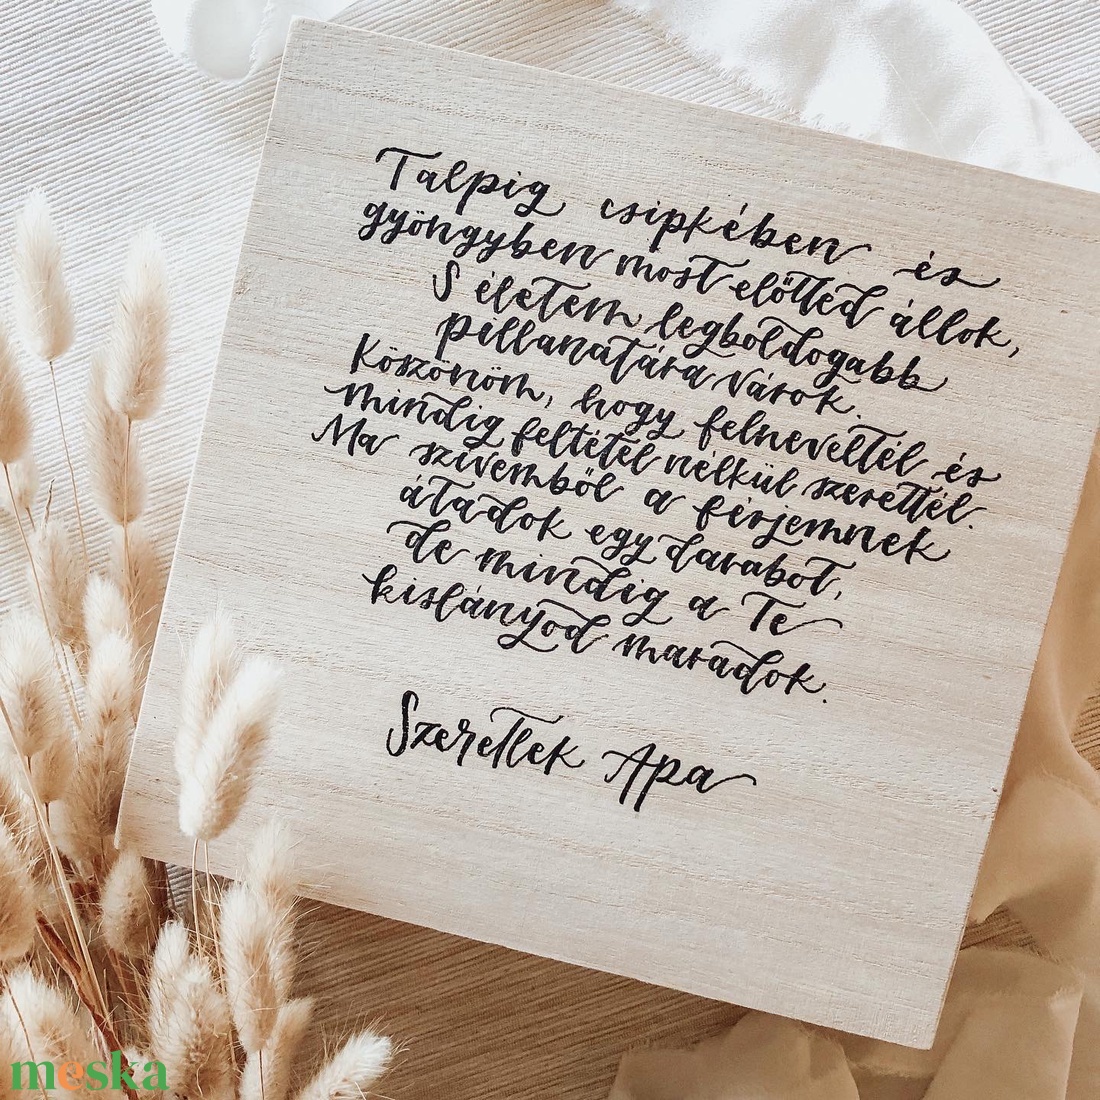 Talpig csipkében és
gyöngyben most előtted állok,
S életem legboldogabb
pillanatára várok.
Köszönöm, hogy felneveltél és
mindig feltétel nélkül szerettél.
Ma szívemből a férjemnek
átadok egy darabot,
de mindig a Te
kislányod maradok.
Szeretlek Apa
meska